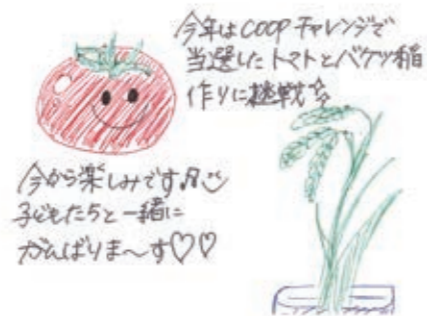 今年はCOOPチャレンジで
当選したトマトとバケツ稲
作りに挑戦☆
今から楽しみです♬
子どもたちと一緒に
がんばりま〜す♡♡